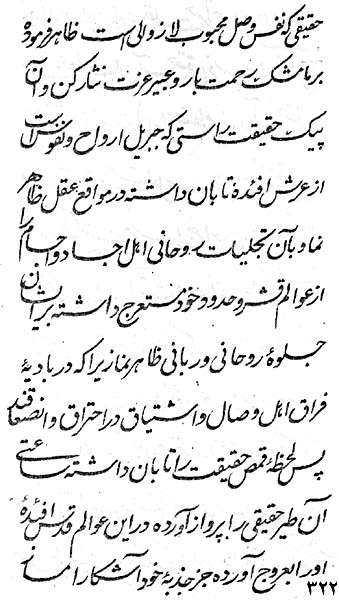 حقیقی که نفس وصل محبوب لا زوالی است ظاهر فرموده
بر ما مشک رحمت بار و عبیر عزت نثار کن و آن
پیک حقیقت راستی که جبریل ارواح و نفوس است
از عرش افئده تابان داشته در مواقع عقل ظاهر
نما و بآن تجلیات روحانی اهل اجساد و اجسام را
از عوالم قشر و حدود خود متعرج داشته بر ایشان
جلوهٔ روحانی و ربانی ظاهر نما زیرا که در بادیهٔ
فراق اهل وصال و اشتیاق در احتراق و انصعاقند
پس لحظهٔ قمص حقیقت را تابان داشته ساعتی
آن طیر حقیقی را بپرواز آورده در این عوالم قدس افئدهٔ
او را بعروج آورده جز جذبهٔ خود آشکارا منما
۳۲۲